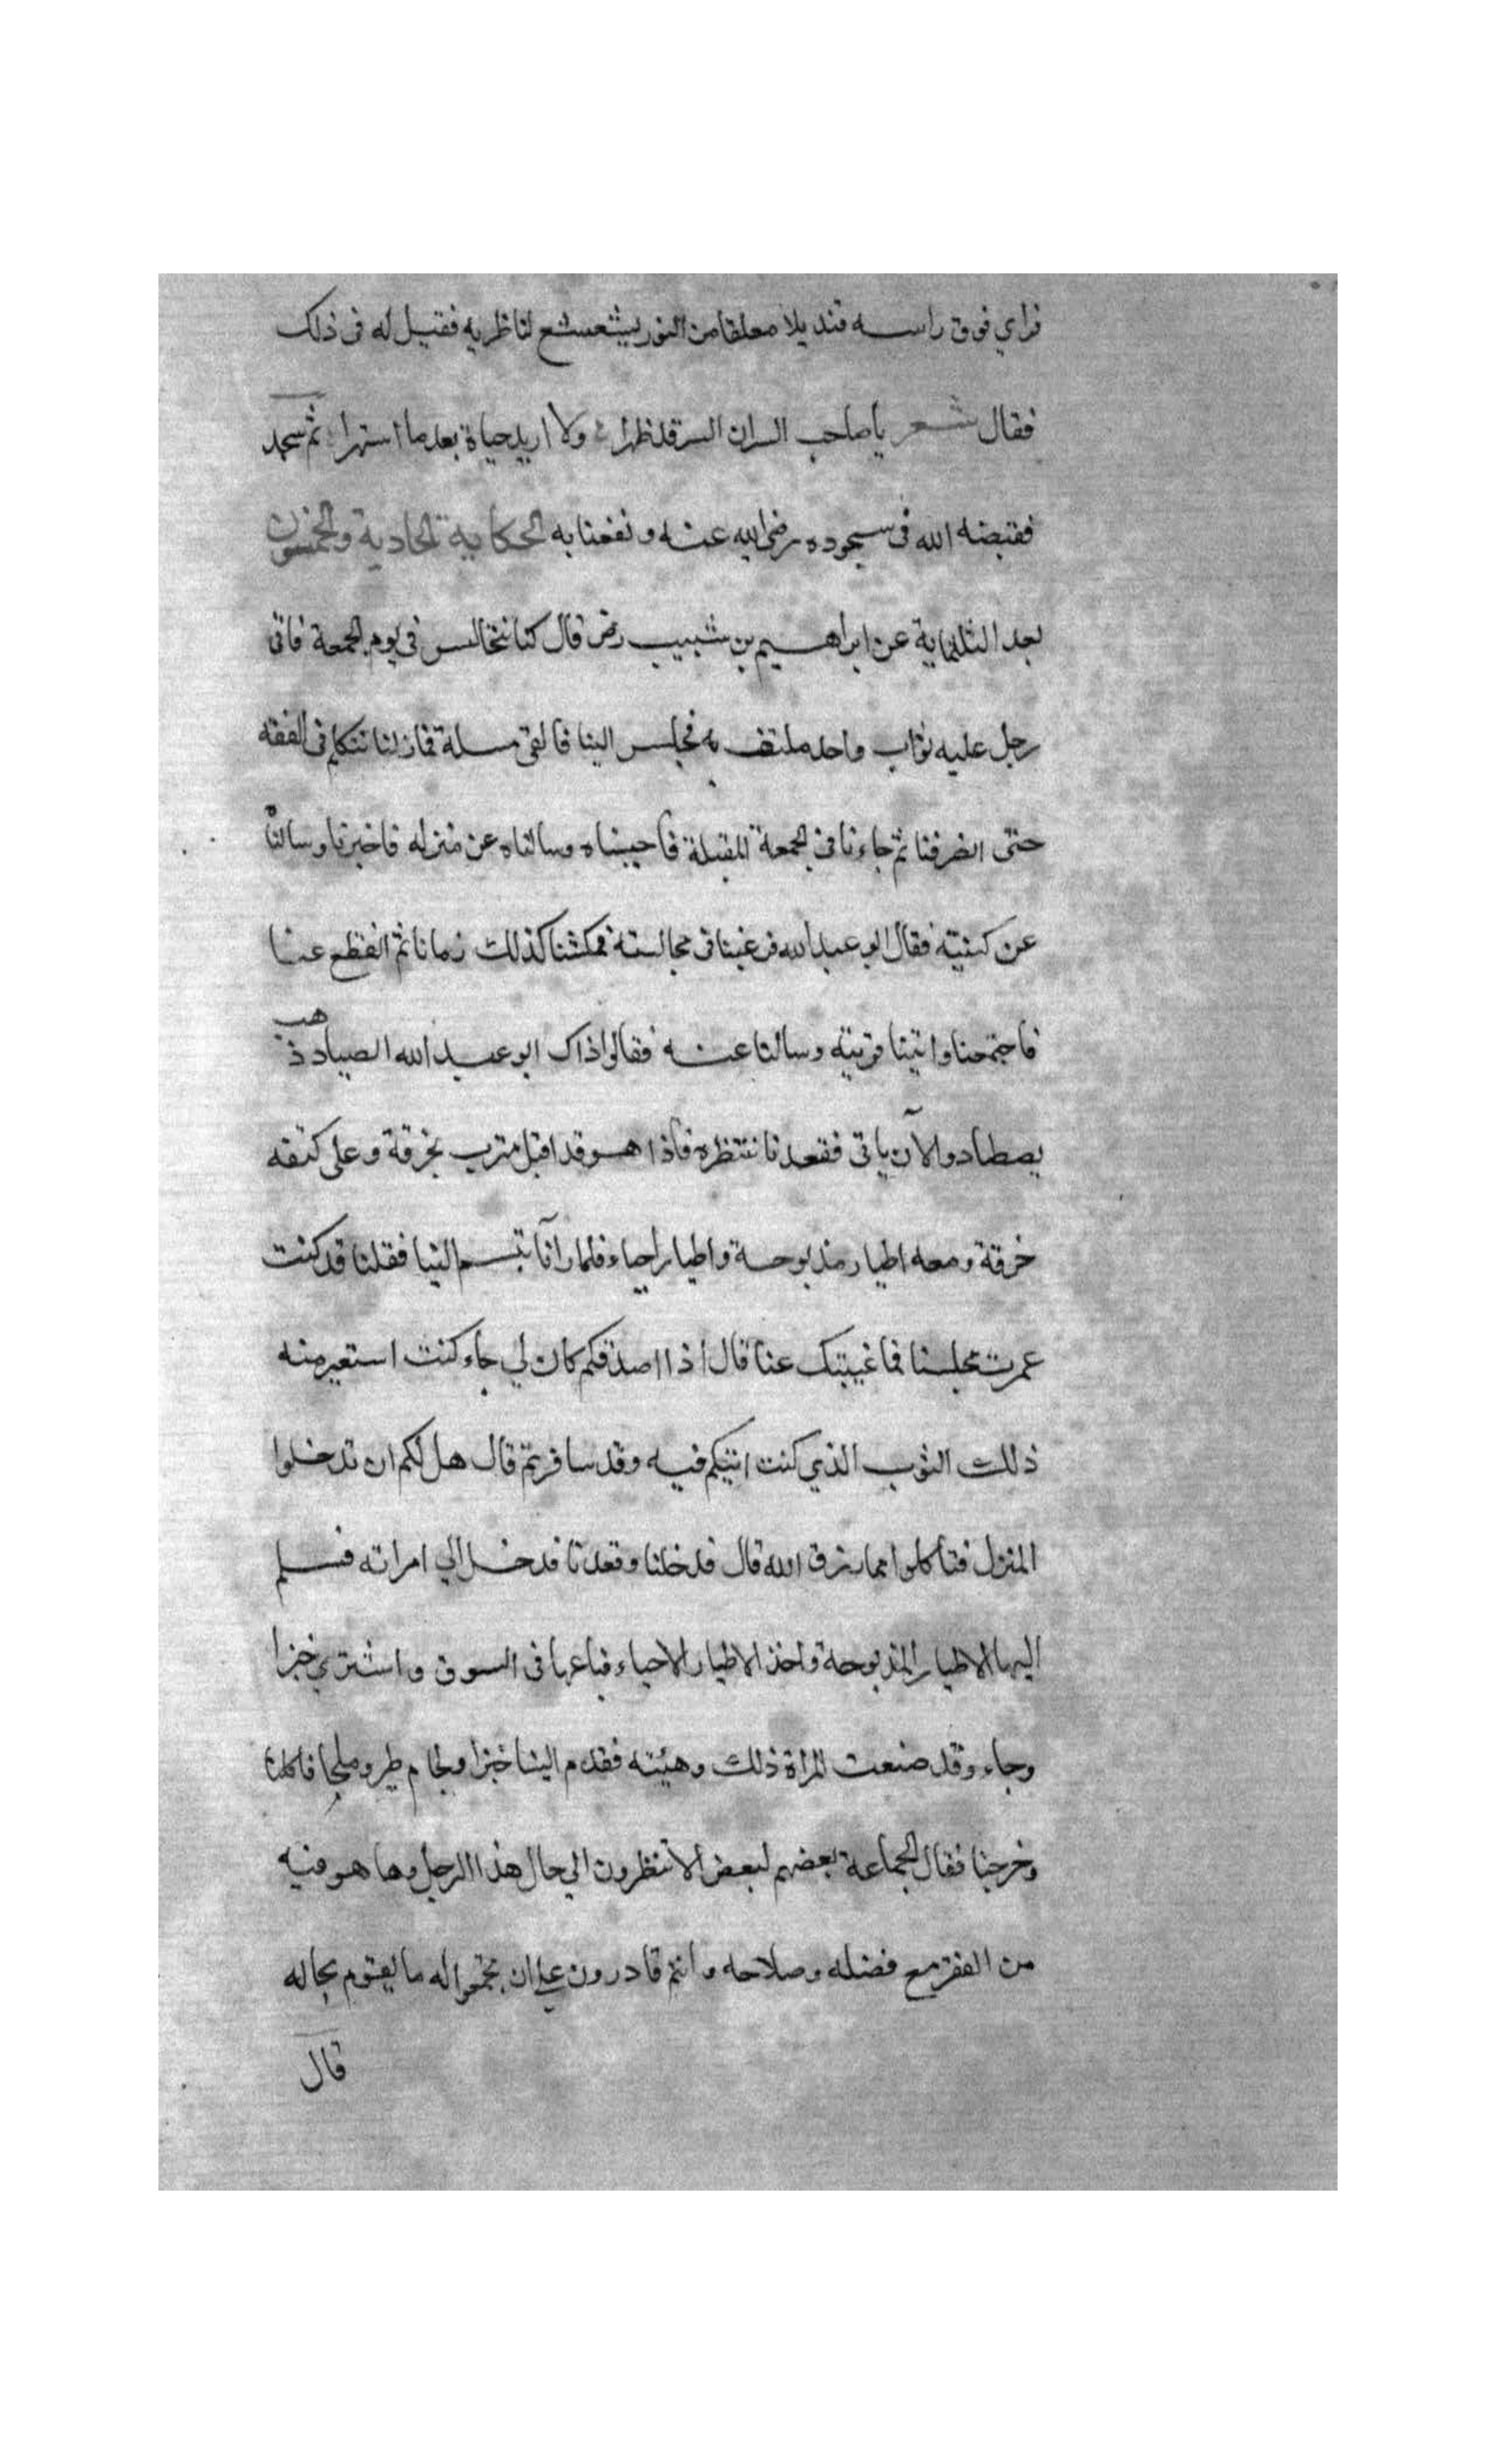 فراي فوق راسه قنديلا معلقا من النور يشعشع لناظريه فقيل له فى ذلك
فقال شعر يا صاحب السران السر قد ظهرا ولا اريد حياة بعد ما اشتهرا ثم سجد
فقبضه الله فى سجوده رضى الله عنه ونفعنا به الحكاية الحادية والخمسون
بعد الثلثماية عن ابراهيم بن شبيب رض قال كنا نتجالس فى يوم الجمعة فاتى
رجل عليه ثواب واحد ملتف به فجلس الينا فالقى مسلة فما زلنا نتكلم فى الفقه
حتى انصرفنا ثم جاءنا فى الجمعة المقبلة فاحببناه وسالناه عن منزله فاخبرنا وسالنا
عن كنيته فقال ابو عبد الله فرغبنا فى مجالسته فمكثنا كذلك زمانا ثم انقطع عنا
فاجتمعنا واتينا قريته وسالنا عنه فقالوا ذاك ابو عبد الله الصياد ذهب
يصطاد والآن ياتى فقعدنا ننتظره فاذا هو قد اقبل متزر بخرقة وعلى كتفه
خرقة ومعه اطيار مذبوحة واطيار احياء فلما رآنا تبسم الينا فقلنا قد كنت
عمرت مجلسنا فما غيبتك عنا قال اذا اصدقكم كان لي جاء كنت استعير منه
ذلك الثوب الذي كنت اتيكم فيه وقد سافر ثم قال هل لكم ان تدخلوا
المنزل فتاكلوا مما رزق الله قال فدخلنا وقعدنا فدخل الي امراته فسلم
اليها الاطيار المذبوحة واخذ الاطيار الاحياء فباعها فى السوق واشتري خبزا
وجاء وقد صنعت المراة ذلك وهيئته فقدم الينا خبزا ولحام طير وملحا فاكلنا
وخرجنا فقال الجماعة بعضهم لبعض الا تنظرون الي حال هذا الرجل وما هو فيه
من الفقر مع فضله وصلاحه وانتم قادرون علي ان تجمعوا له ما يقوم بحاله
قال